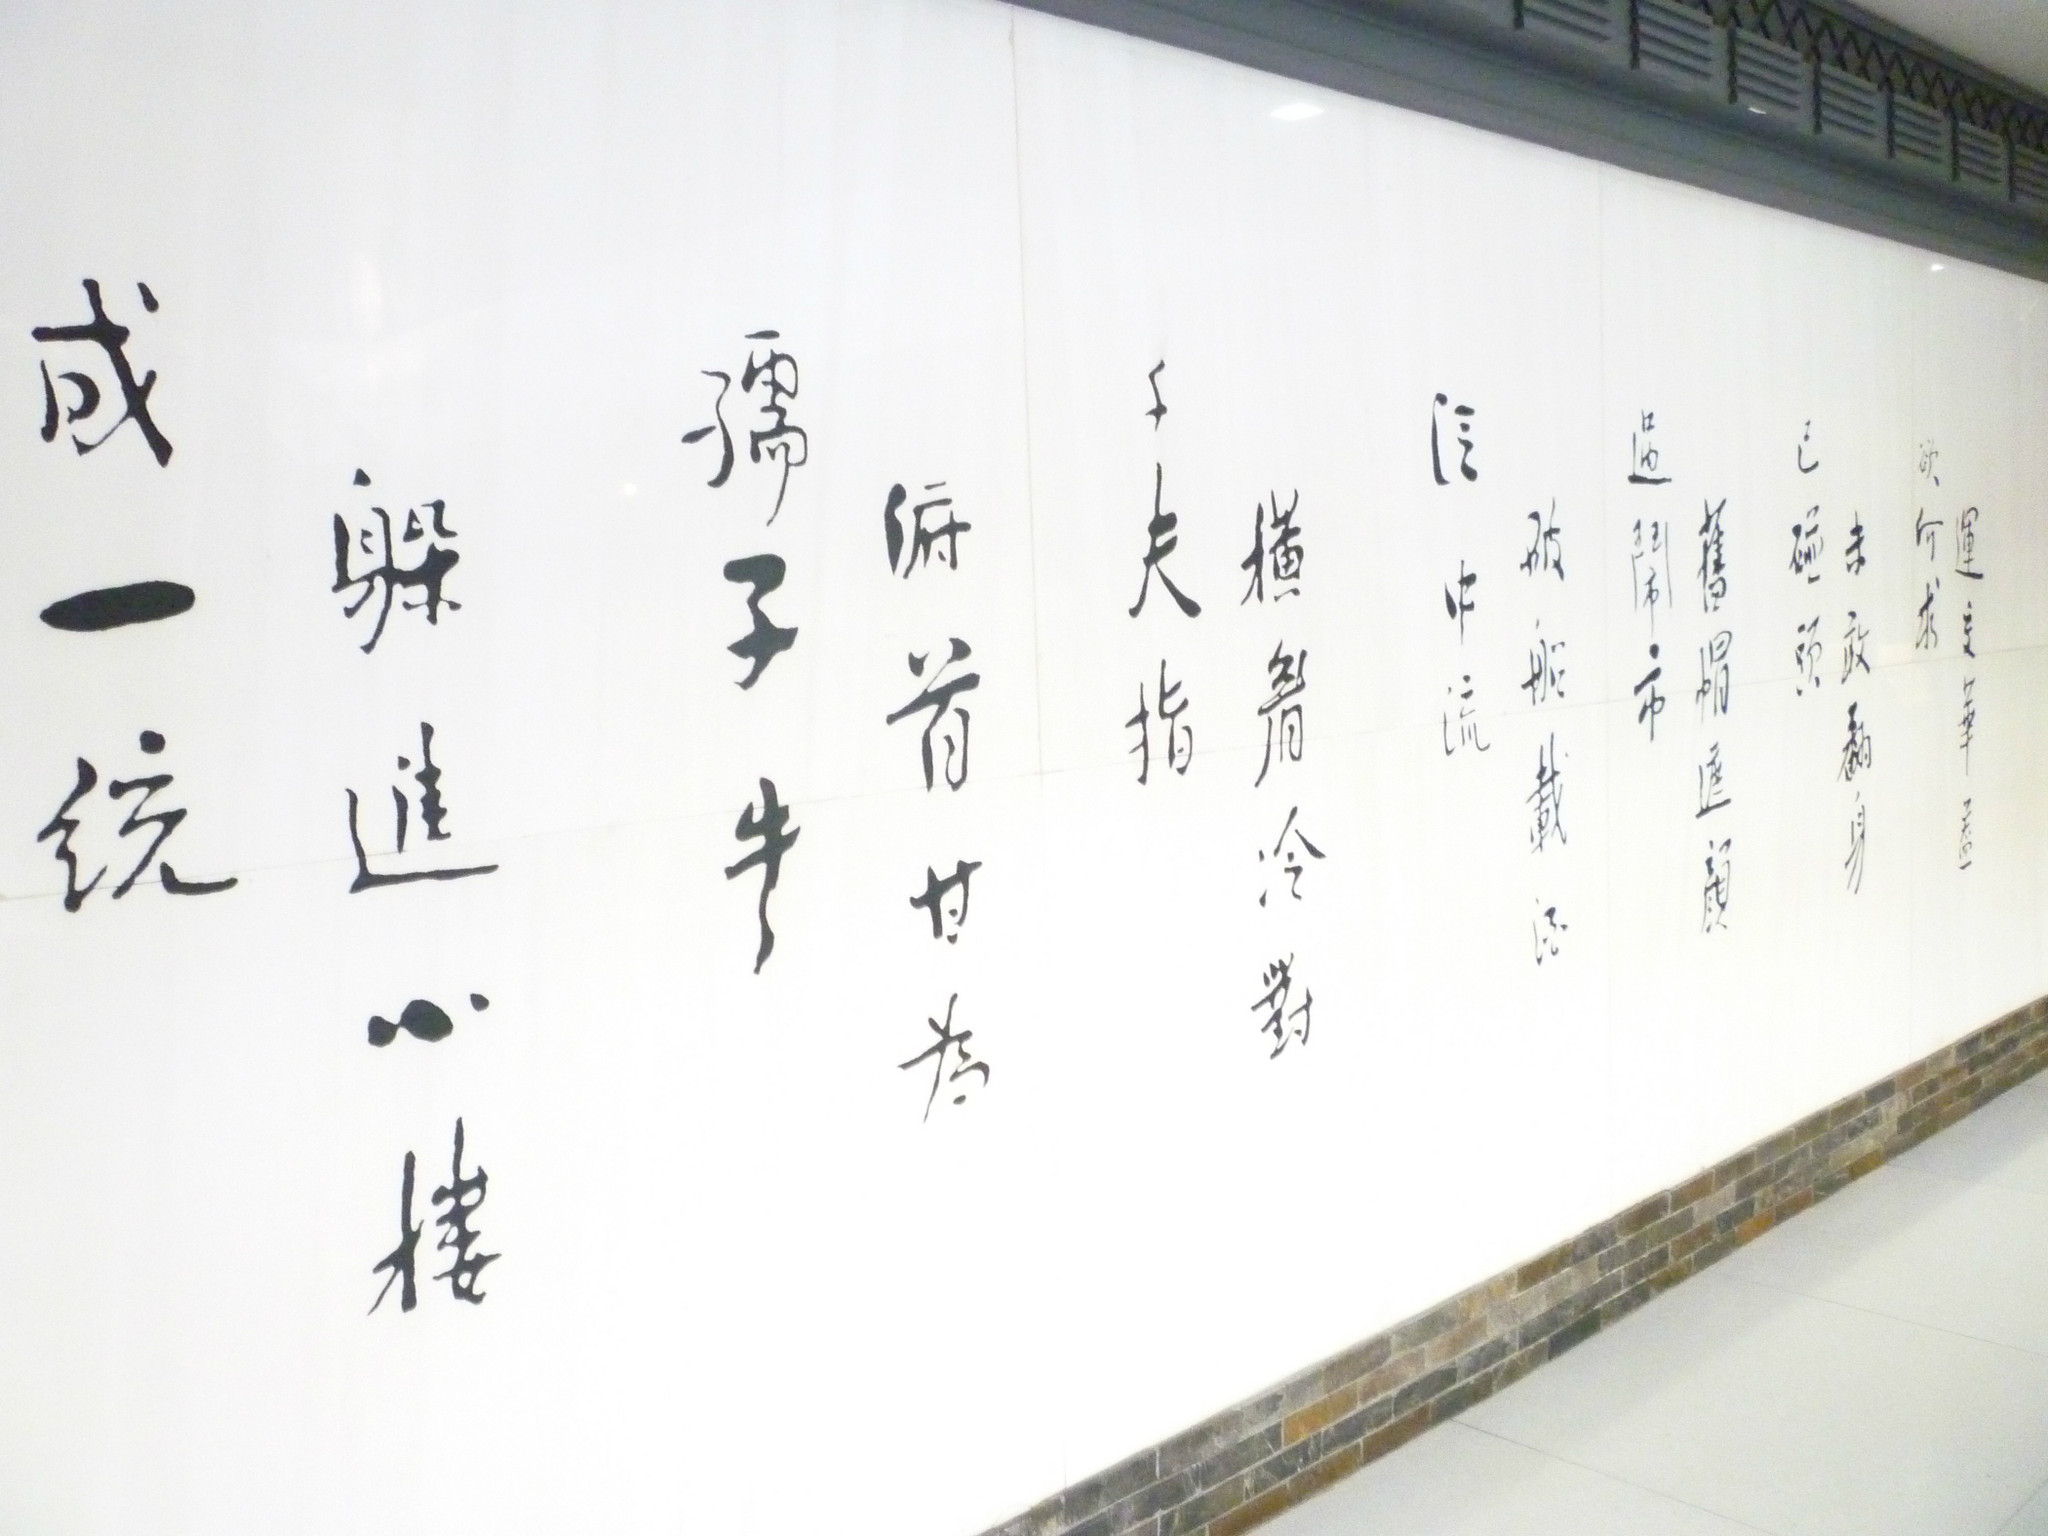 運交華蓋
欲何求
未敢翻身
已碰頭
舊帽遮顏
過鬧市
破船載酒
泛中流
橫眉冷對
千夫指
俯首甘為
孺子牛
躲進小樓
成一統